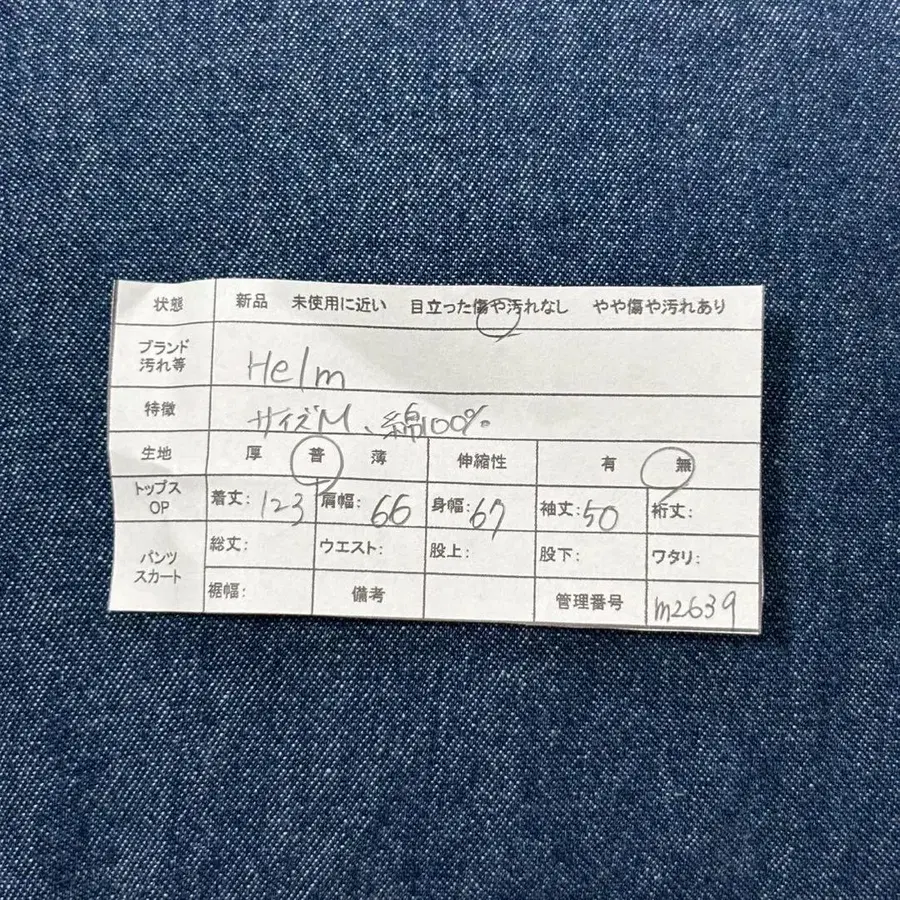 状態 新品 未使用に近い 目立った傷や汚れなし やや傷や汚れあり
ブランド
汚れ等
Helm
特徴 サイズM、綿100%
生地 厚 普 薄 伸縮性 有 無
トップス
OP
着丈:123 肩幅:66 身幅:67 袖丈:50 裄丈:
パンツ
スカート
総丈: ウエスト: 股上: 股下: ワタリ:
裾幅: 備考 管理番号 m2639